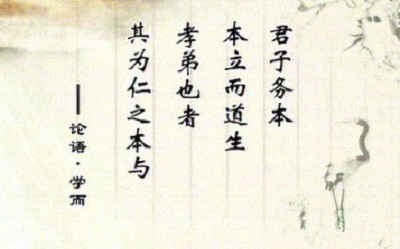 君子务本
本立而道生
孝弟也者
其为仁之本与
——论语·学而